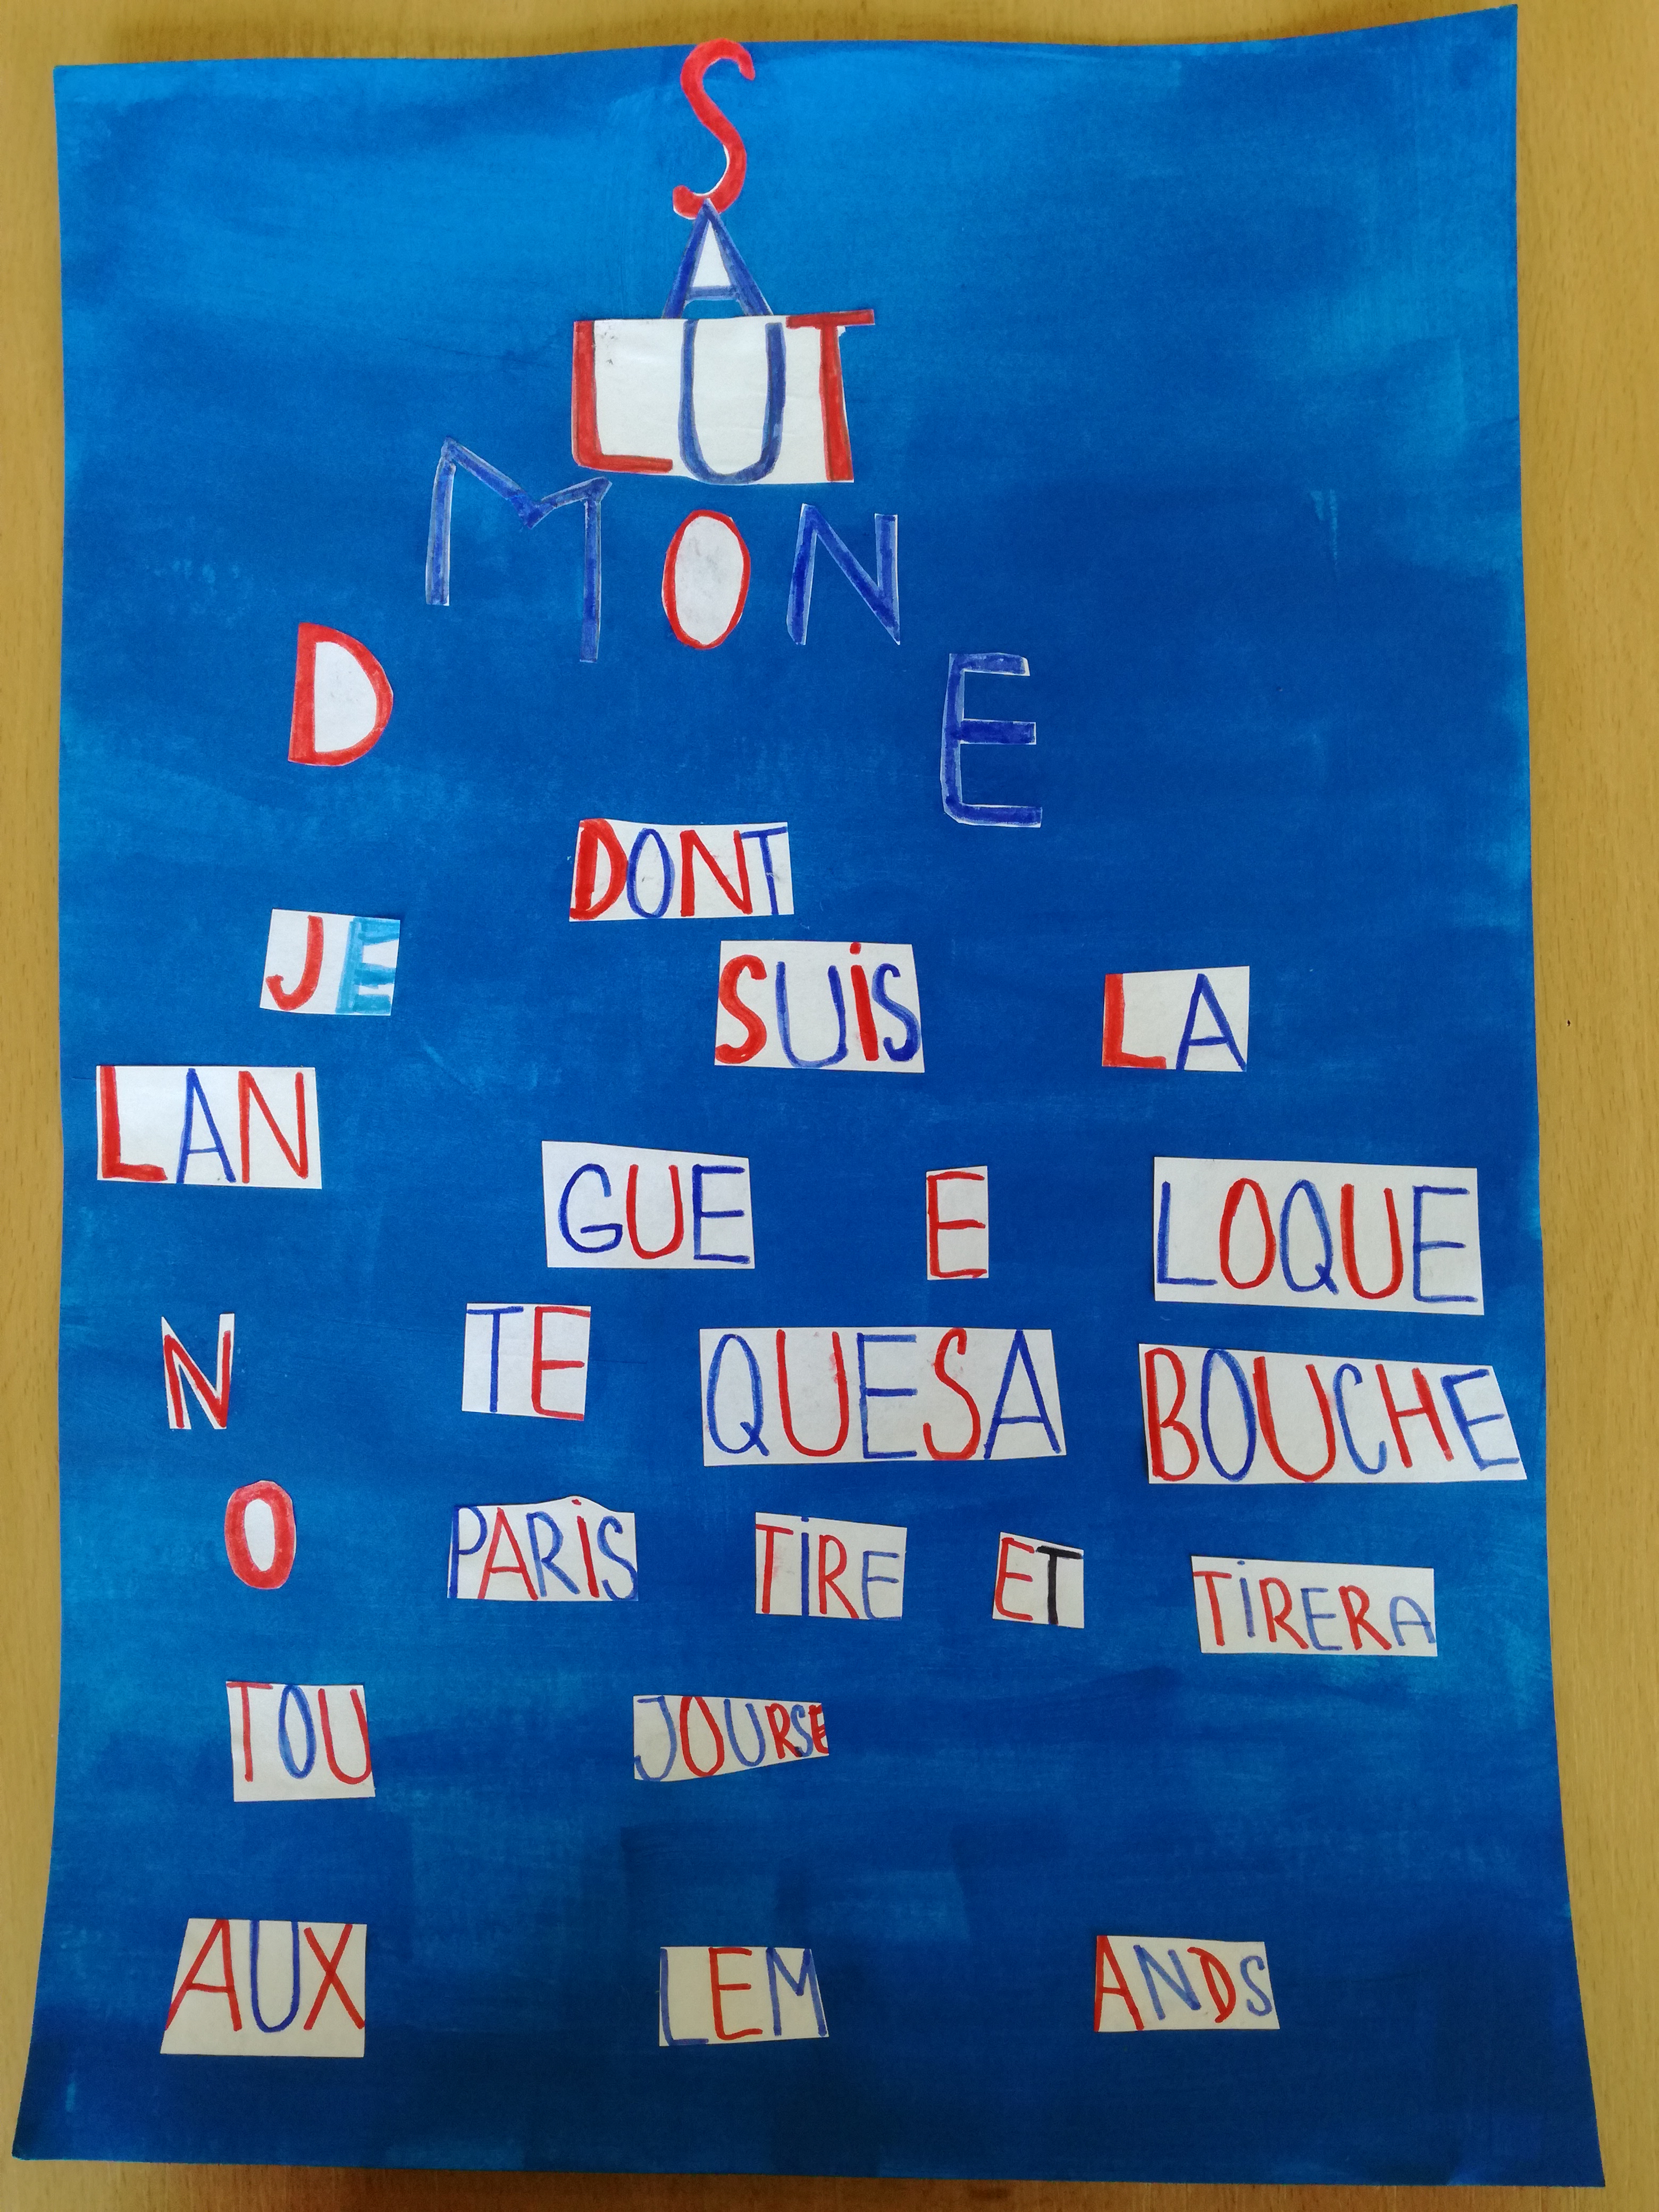 S
A
LUT
MON
D E
DONT
JE SUiS LA
LAN GUE E LOQUE
N TE QUESA BOUCHE
O PARiS TiRE ET TiRERA
TOU JOURSE
AUX LEM ANDS